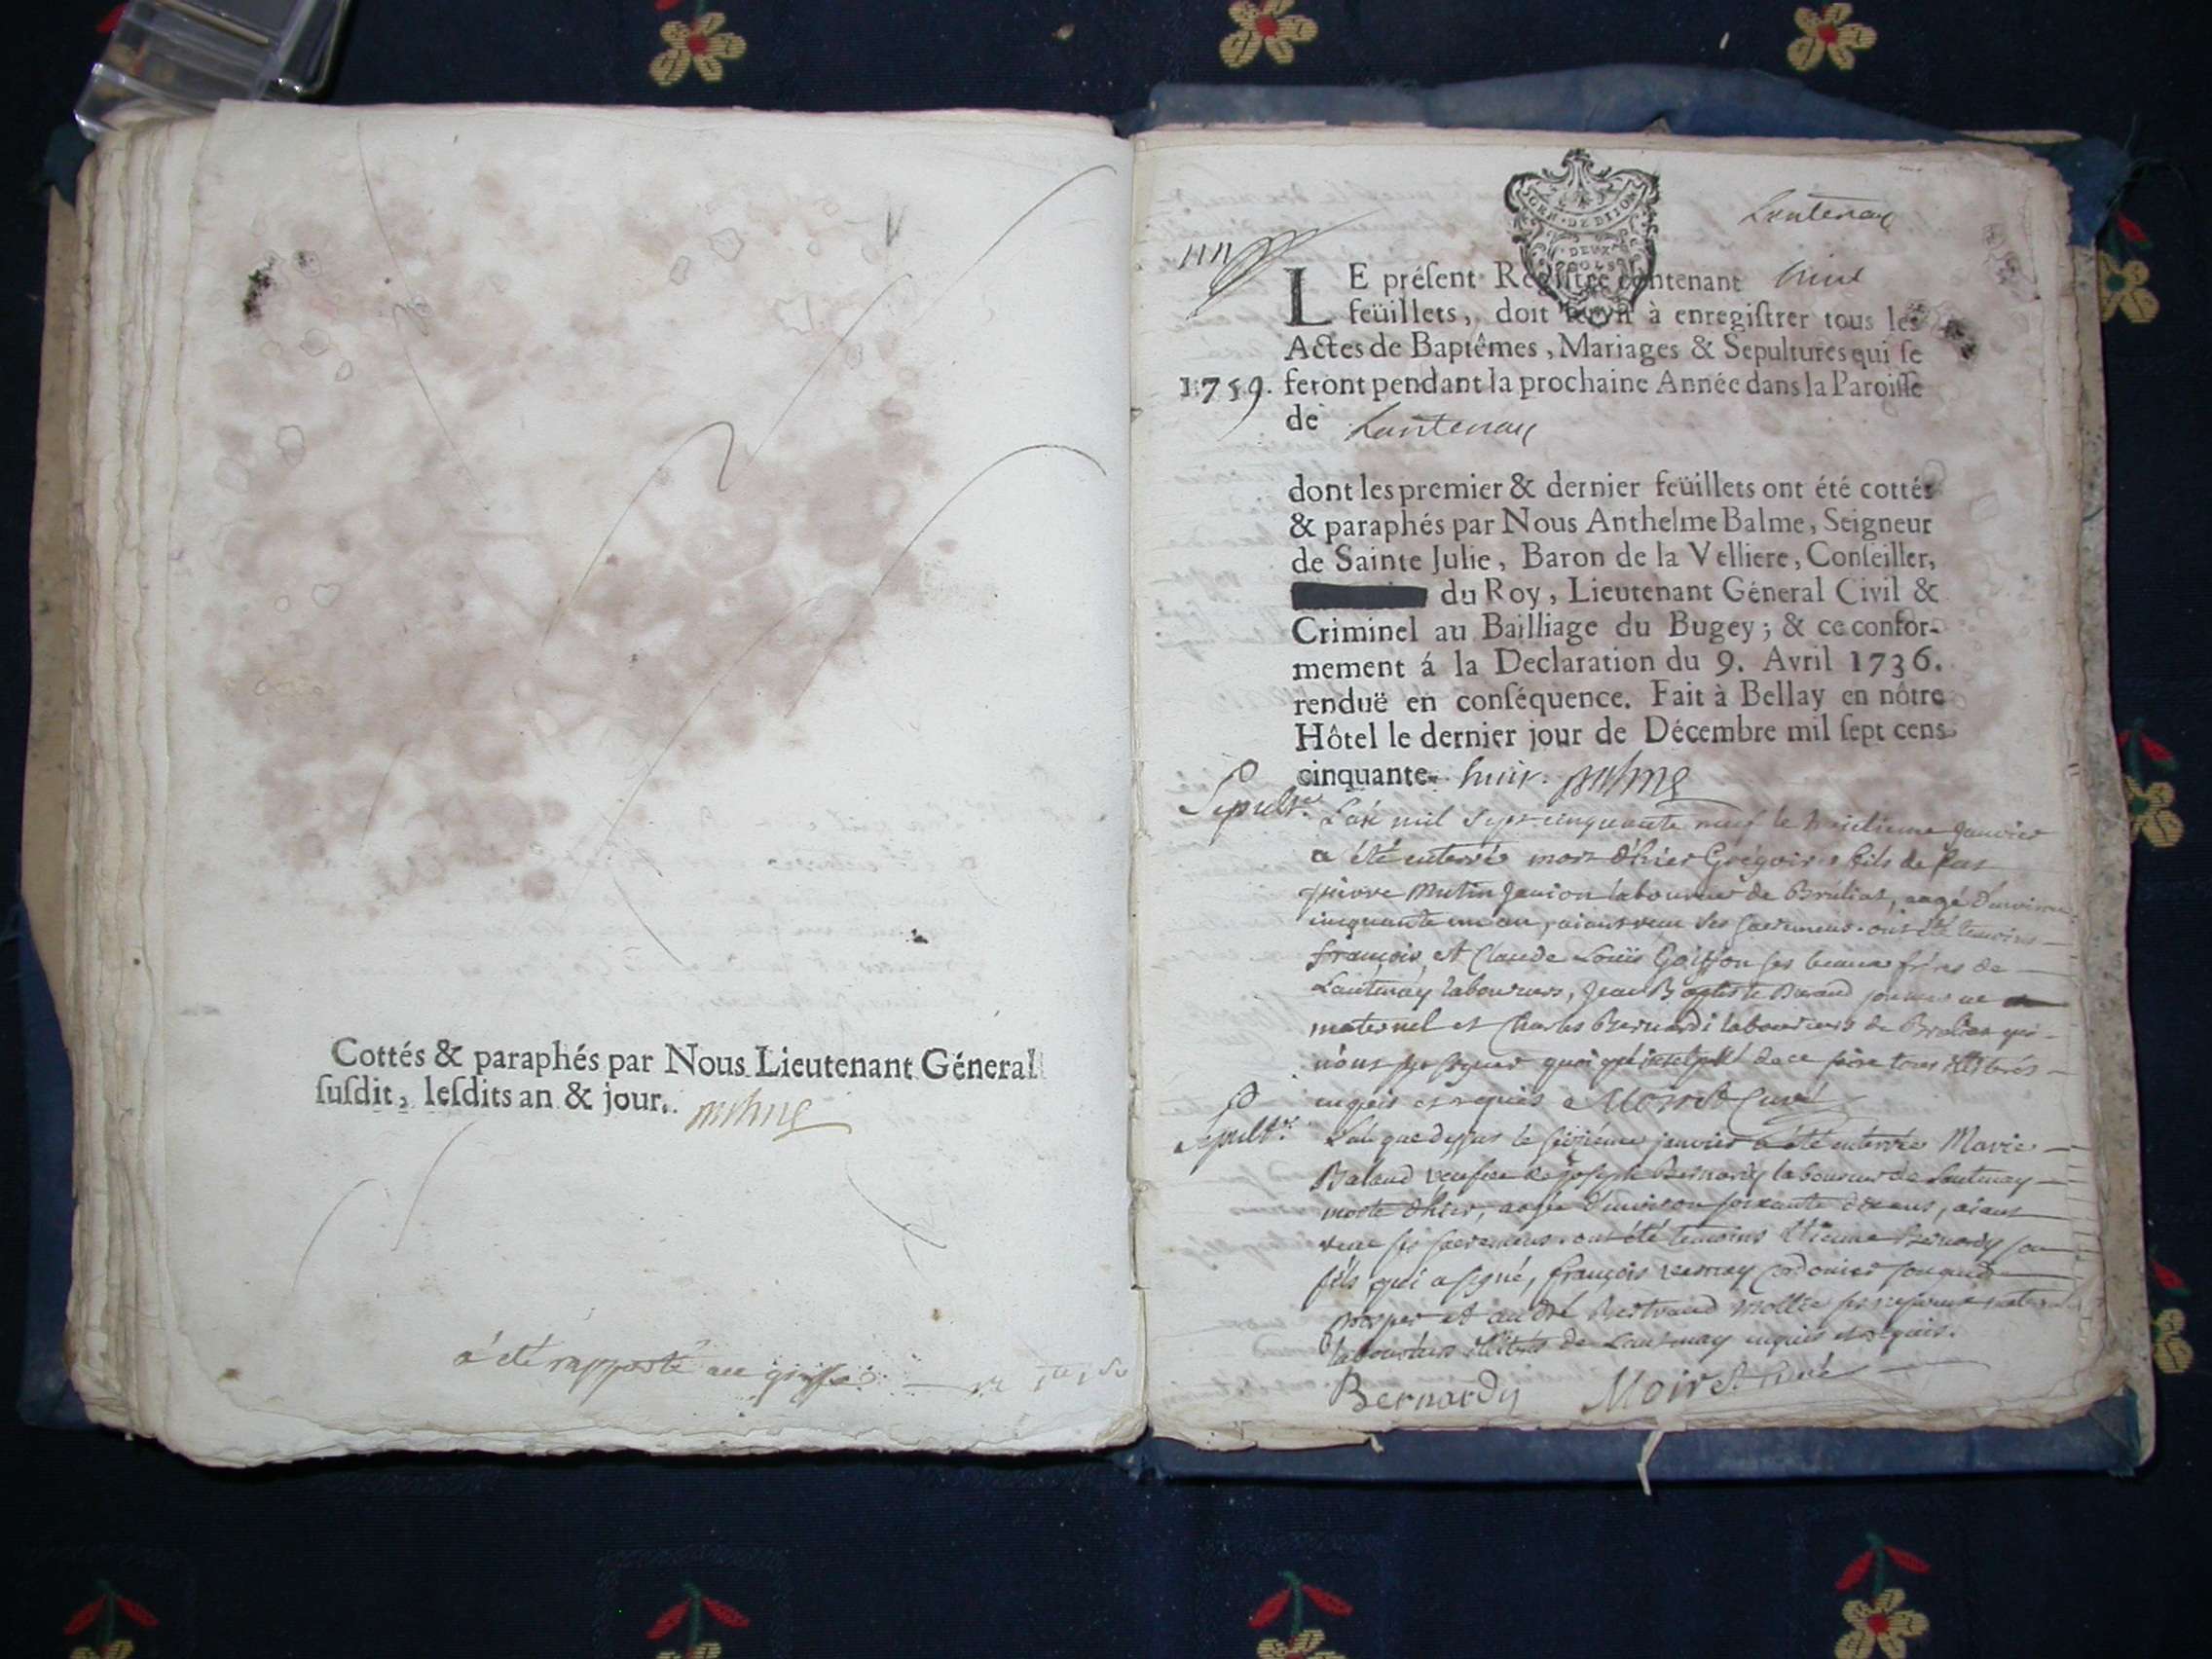 Cottés & paraphés par Nous Lieutenant Géneral
ſuſdit, leſdits an & jour.
a été rapporté au greffe
GEN. DE DIJON
DEUX
SOLS
Lantenay
LE préſent Regiſtre contenant
feüillets, doit ſervir à enregiſtrer tous les
Actes de Baptêmes, Mariages & Sepultures qui ſe
1759. feront pendant la prochaine Année dans la Paroiſſe
de Lantenay
dont les premier & dernier feüillets ont été cottés
& paraphés par Nous Anthelme Balme, Seigneur
de Sainte Julie, Baron de la Velliere, Conſeiller,
du Roy, Lieutenant Géneral Civil &
Criminel au Bailliage du Bugey; & ce confor-
mement á la Declaration du 9. Avril 1736.
renduë en conſéquence. Fait à Bellay en nôtre
Hôtel le dernier jour de Décembre mil ſept cens
cinquante- huit. Balme
Sepult.re L'an mil sept cinquante neuf le janvier
a été enterré mort d'hier Grégoire fils de feu
pierre Mutin Janion laboureur de Bruliat, aagé d'environ
cinquante un an, aiant receu ses sacremens. ont été temoins
françois et Claude Louis Goiffon ses beaux frères de
Lantenay laboureurs, Jean Baptiste Durand
maternel et Charles Bernardi laboureurs de Bruliat qui
n'ont de ce faire tous illitérés
enquis et requis Moiret Curé
Sepult.re L'an que dessus le sixième janvier a été enterrée Marie
Baland veufve de joseph Bernardy laboureur de Lantenay
morte d'hier, aagée d'environ soixante dix ans, aiant
receu ses sacremens. ont été temoins Etienne Bernardy son
fils qui a signé, françois cordonier son gendre
et andré Bertrand Mollie ses
laboureurs illitérés de Lantenay enquis et requis.
Bernardy Moiret Curé